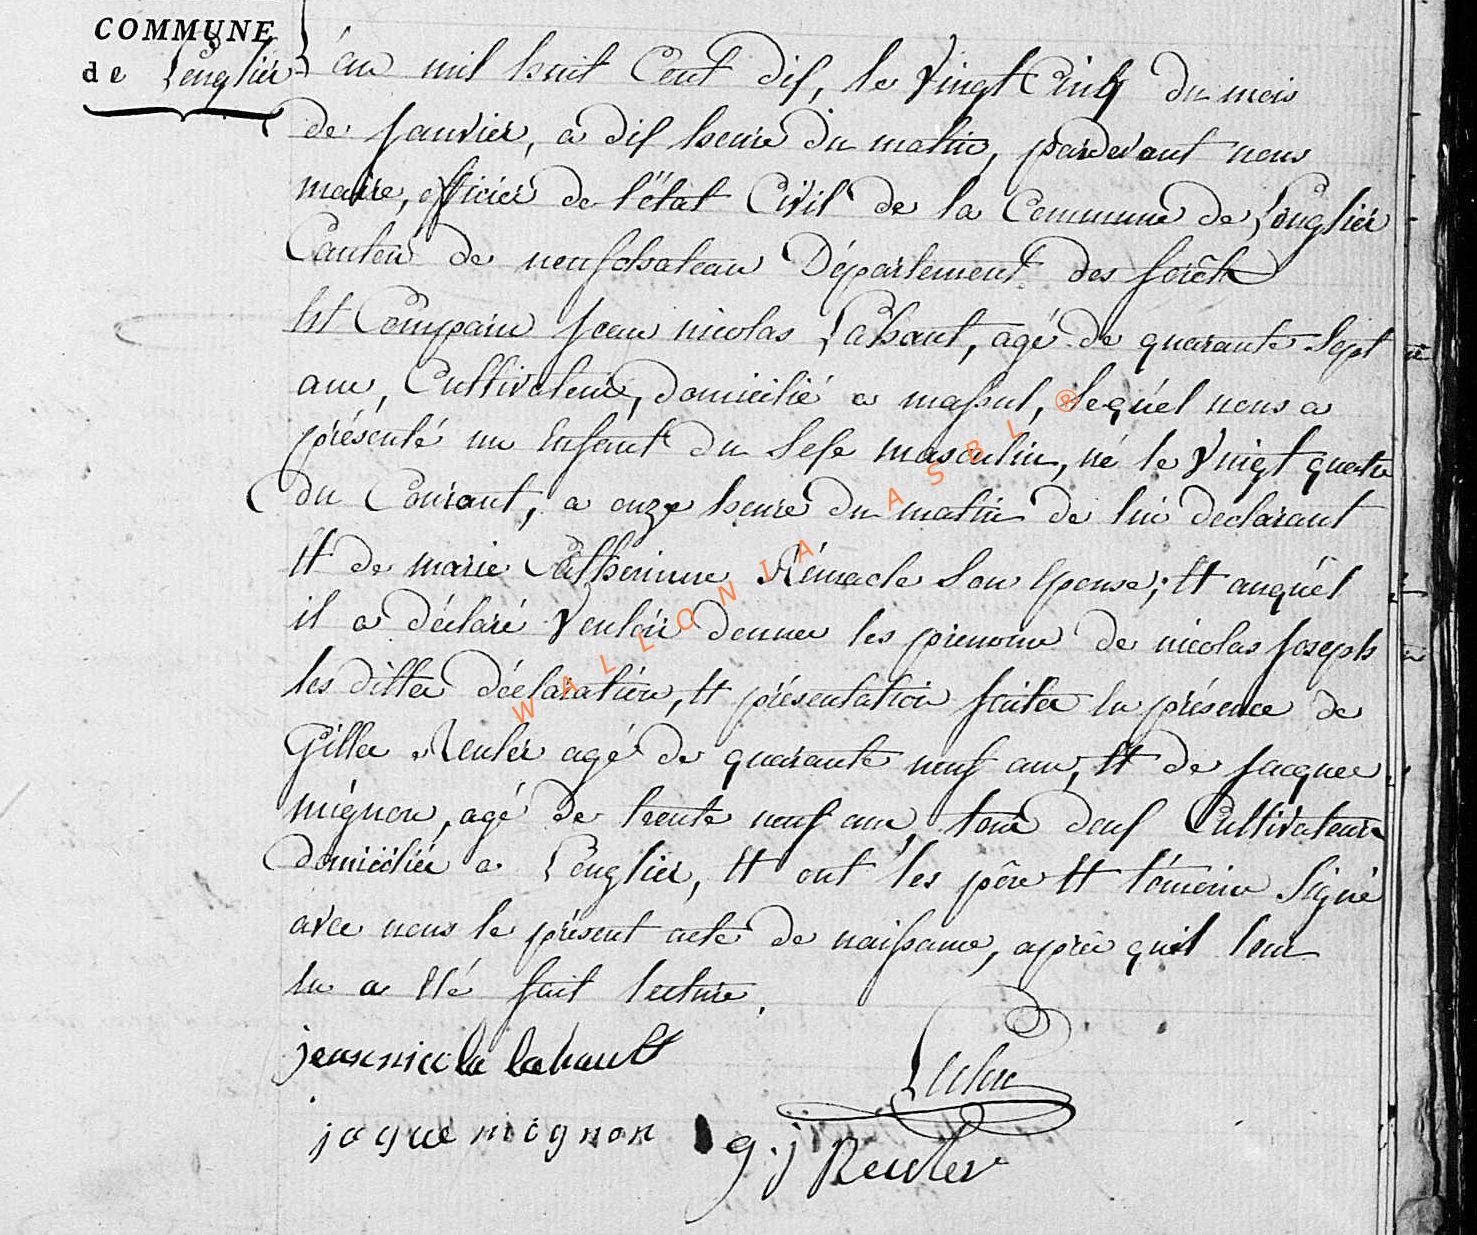 COMMUNE
de Longlier
L'an mil huit Cent dix, le Vingt Cinq du mois
de Janvier, a dix heure du matin, pardevant nous
maire, officier de l'état Civil de la Commune de Longlier
Canton de neufchateau Département des forêts
Est Comparu Jean nicolas Lahaut, agé de quarante Sept
ans, Cultivateur, domicilié a massul, lequél nous a
présenté un Enfant du Sexe masculin, né le Vingt quatre
du Courant, a onze heure du matin de lui declarant
Et de marie Catherinne Rémacle Son Epouse; Et auquél
il a déclaré Vouloir donner les prenoms de nicolas Joseph
les dittes déclaration, Et présentation faites En présence de
Gilles Reuler agé de quarante neuf ans, Et de Jacques
mignon, agé de trente neuf ans, tous deux Cultivateurs
domiciliés a Longlier, Et ont les père Et témoins Signé
avec nous le présent acte de naissance, après quil leur
En a Eté fait lecture.
jean nicola lahault
jaque mignon
g. j Reuler
WALLONIA ASBL ®